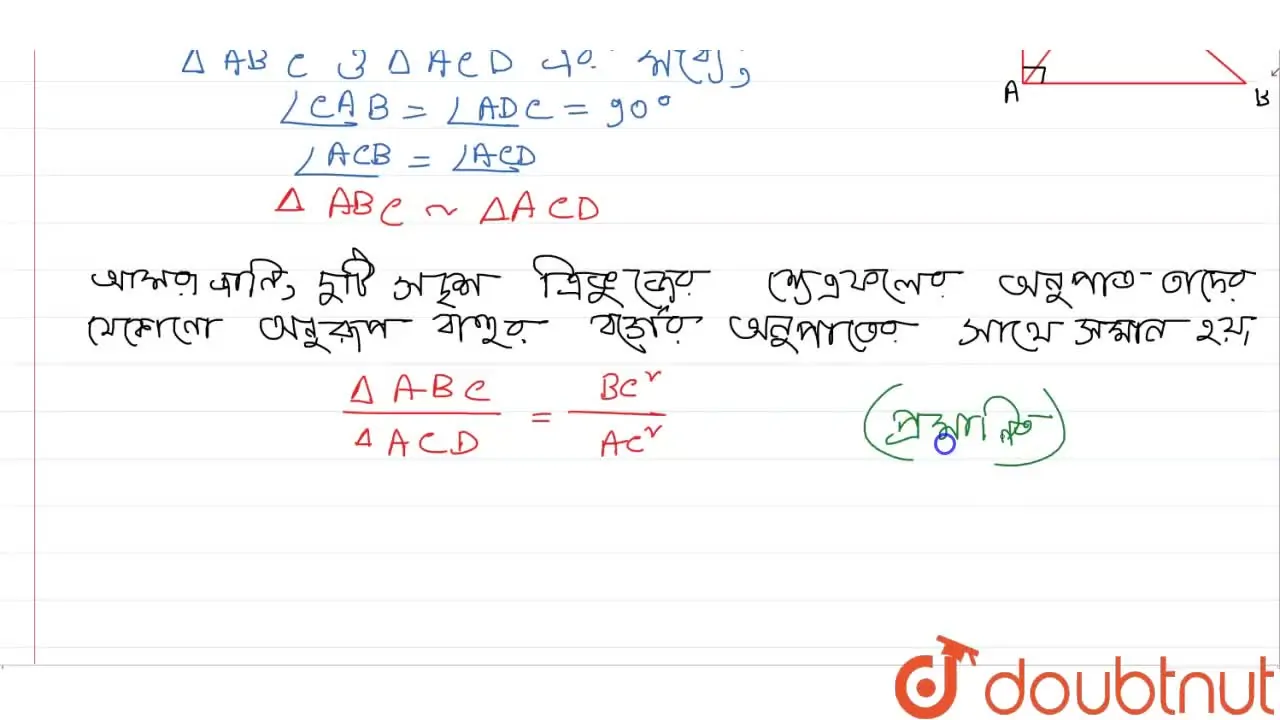 Δ ABC ও Δ ACD এর মধ্যে,
A
B
∠CAB = ∠ADC = 90°
∠ACB = ∠ACD
Δ ABC ~ ΔACD
আমরা জানি, দুটি সদৃশ ত্রিভুজের ক্ষেত্রফলের অনুপাত তাদের
যেকোনো অনুরূপ বাহুর বর্গের অনুপাতের সাথে সমান হয়,
Δ ABC / Δ ACD = BC² / AC²
(প্রমাণিত)
doubtnut